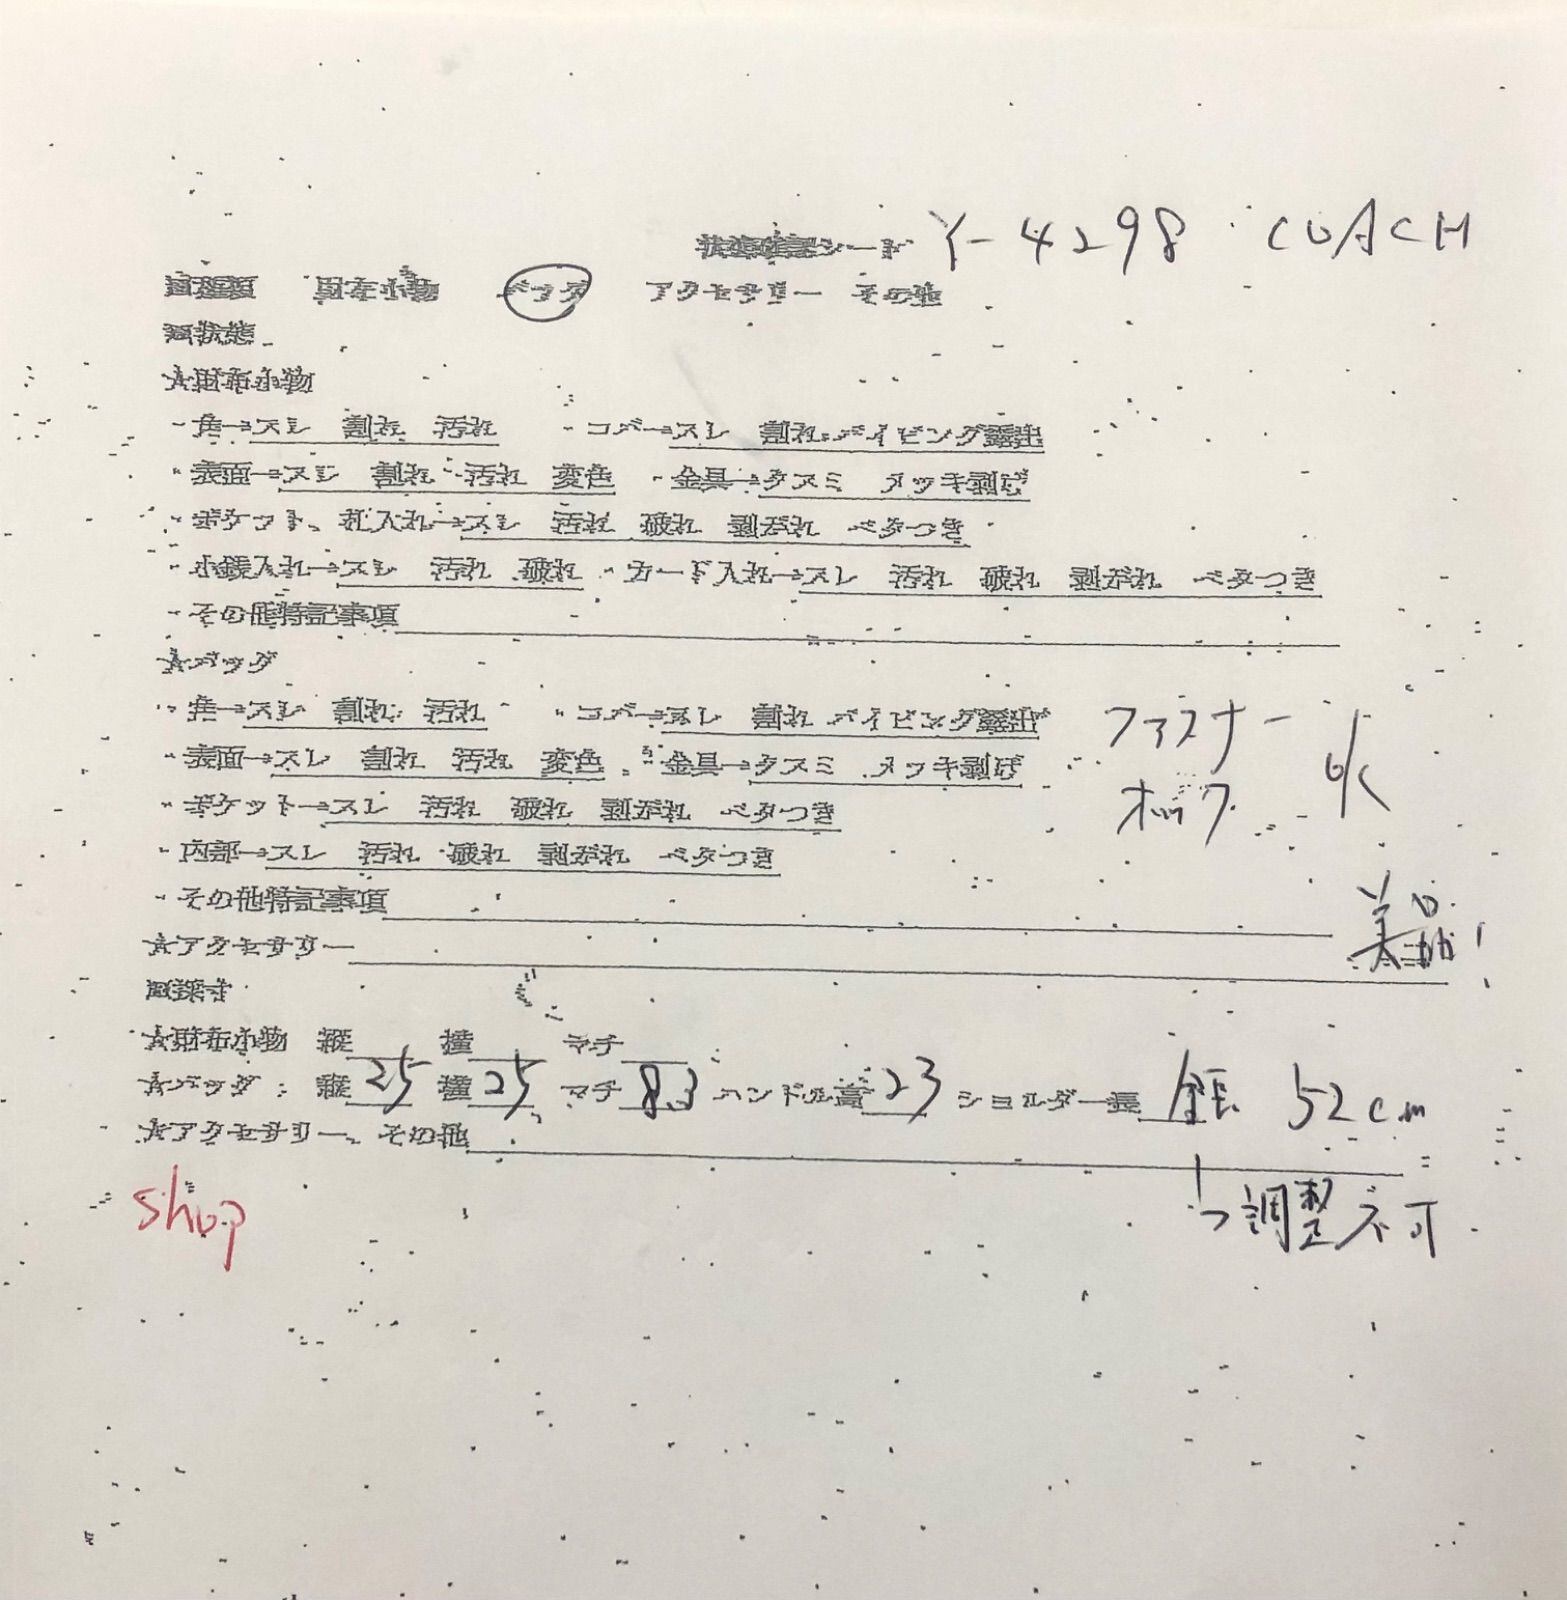 状態確認シート Y-4298 COACH
財布小物 バッグ アクセサリー その他
■状態
★財布小物
・角→スレ 割れ 汚れ ・コバ→スレ 割れ パイピング露出
・表面→スレ 割れ 汚れ 変色 ・金具→クスミ メッキ剥げ
・ポケット、札入れ→スレ 汚れ 破れ 剥がれ ベタつき
・小銭入れ→スレ 汚れ 破れ ・カード入れ→スレ 汚れ 破れ 剥がれ ベタつき
・その他特記事項
★バッグ
・角→スレ 割れ 汚れ ・コバ→スレ 割れ パイピング露出 ファスナー
・表面→スレ 割れ 汚れ 変色 ・金具→クスミ メッキ剥げ ok
・ポケット→スレ 汚れ 破れ 剥がれ ベタつき ホック
・内部→スレ 汚れ 破れ 剥がれ ベタつき
・その他特記事項 美品!
★アクセサリー
■採寸
★財布小物 縦 横 マチ
★バッグ: 縦 25 横 25 マチ 8.3 ハンドル高 23 ショルダー長 全長 52cm
★アクセサリー、その他
↳調整不可
shop